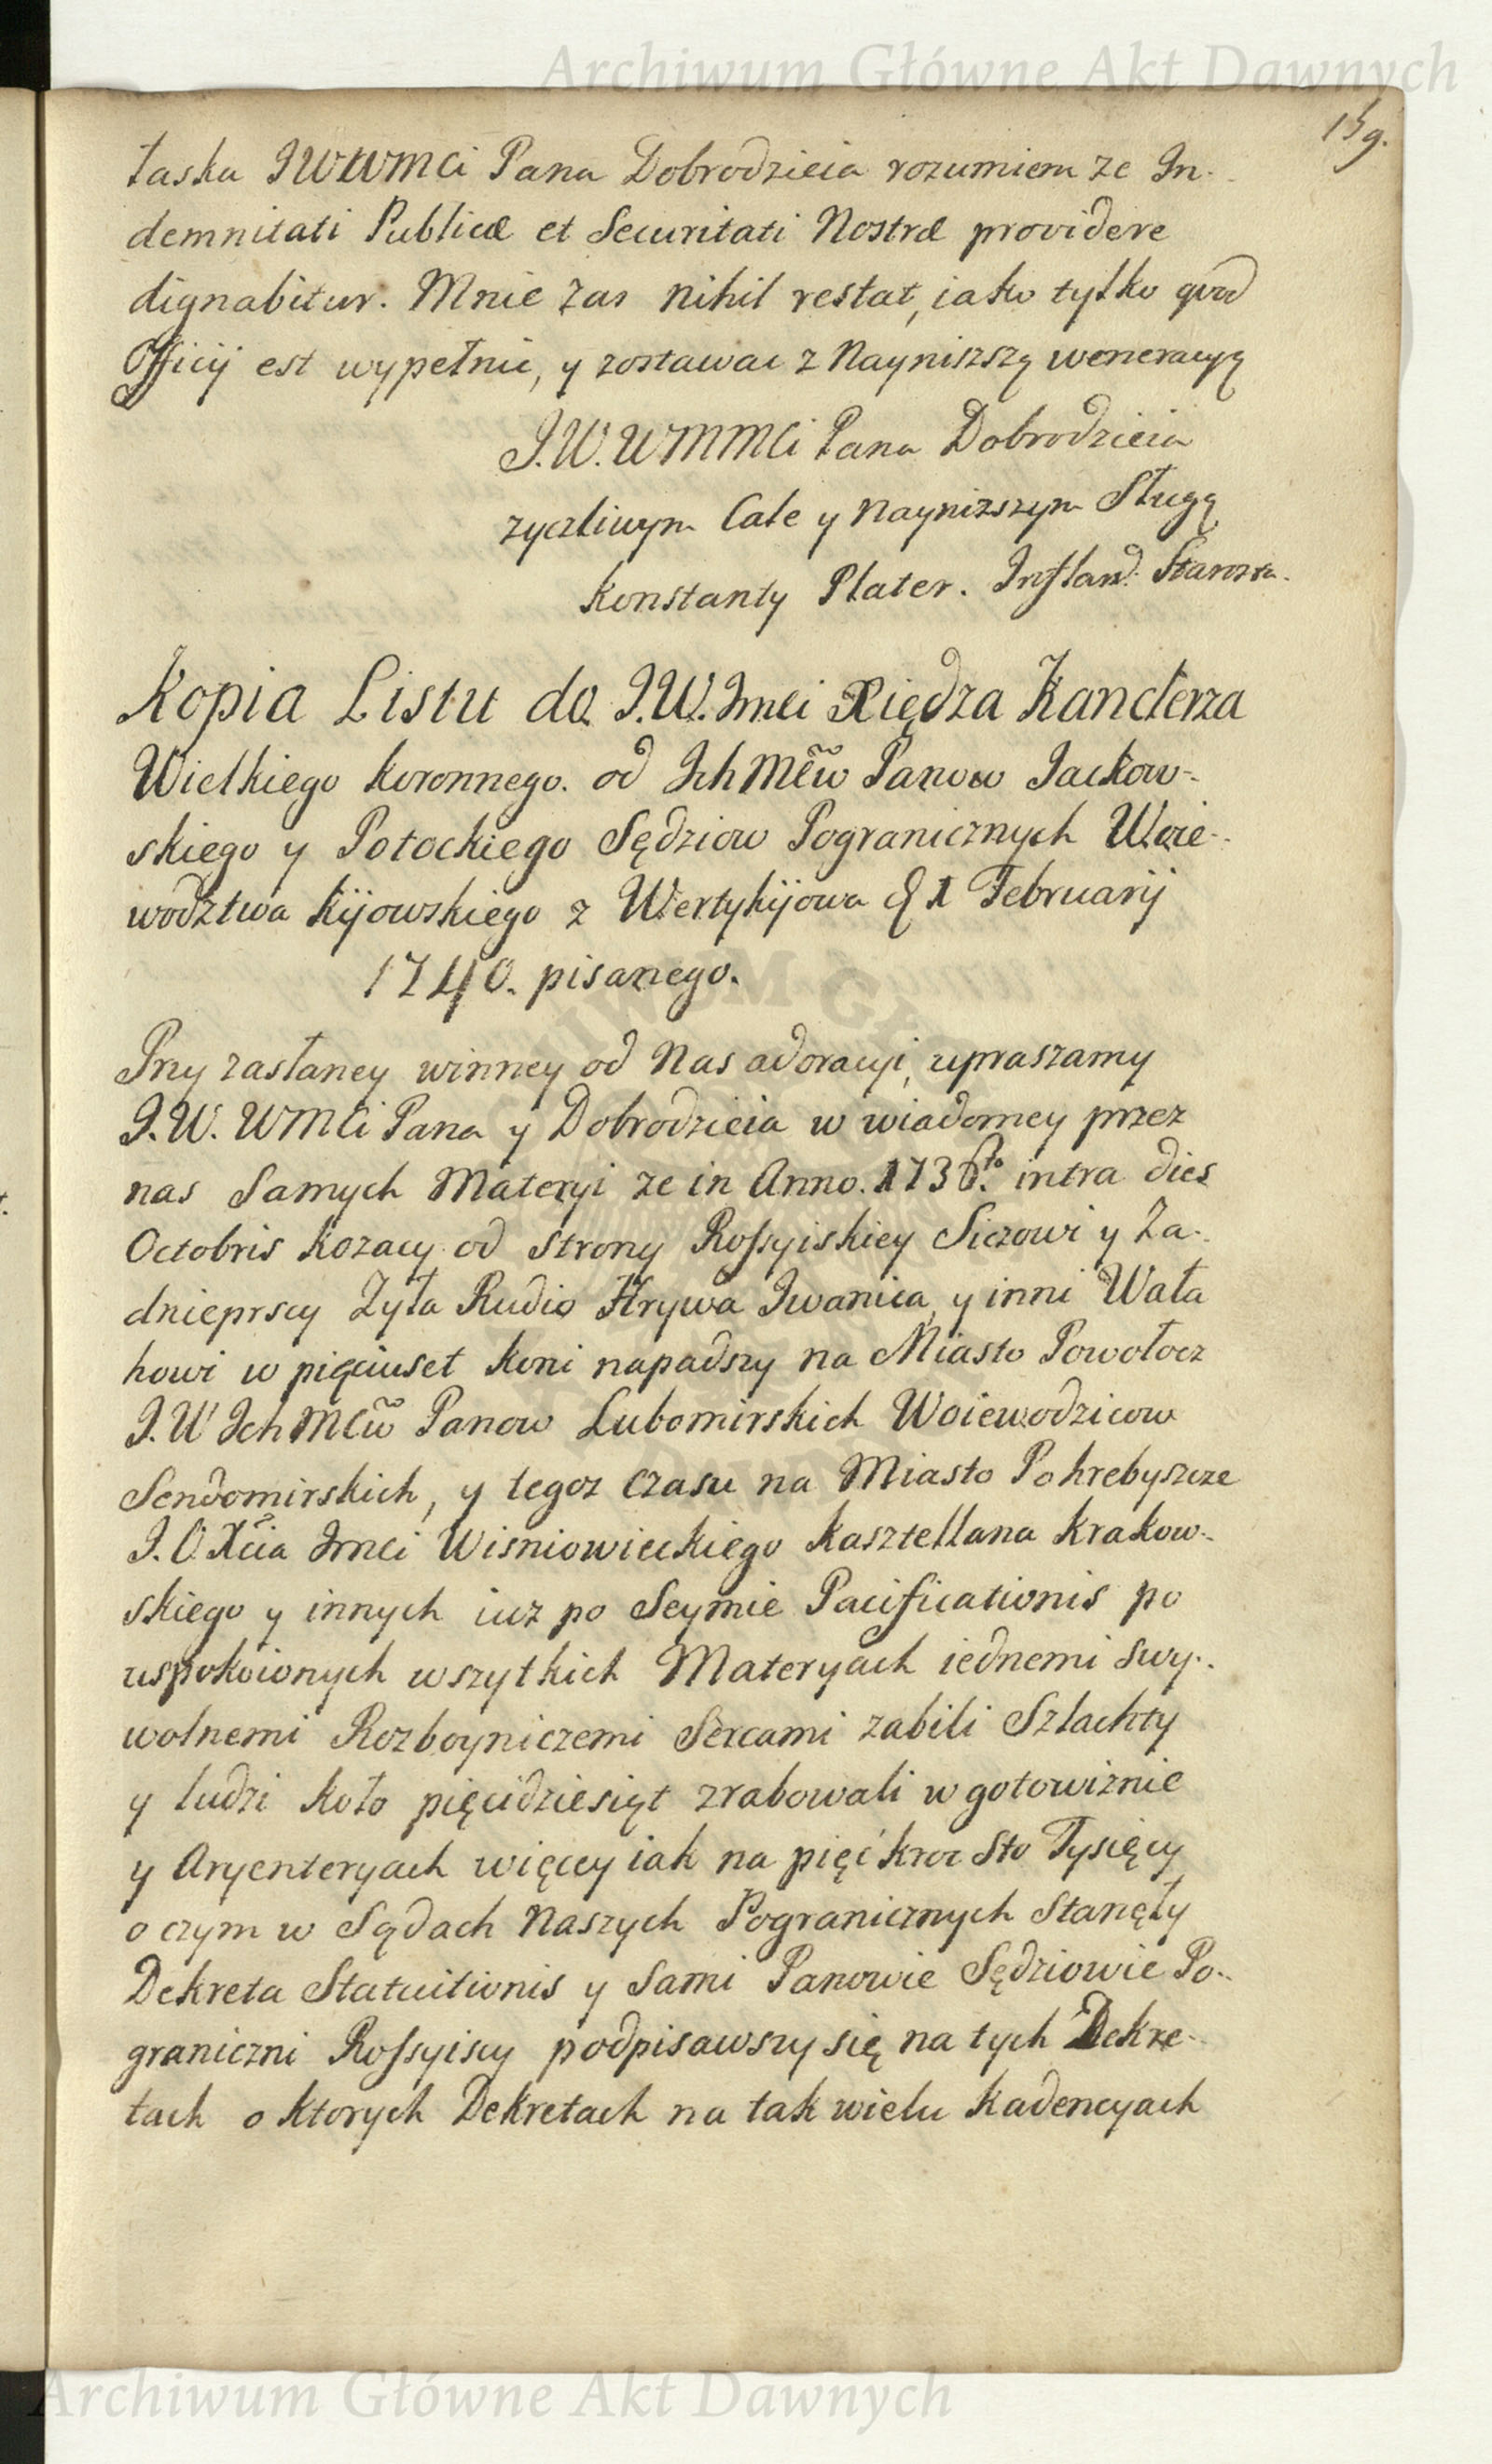 Archiwum Główne Akt Dawnych
159.
łaska JWWMCi Pana Dobrodzieia rozumiem ze In-
demnitati Publicæ et Securitati Nostræ providere
dignabitur. Mnie zas nihil restat, iako tylko quod
Officij est wypełnic, y zostawac z Nayniszszą weneracyą
J.W. WMMCi Pana Dobrodzieia
zyczliwym Cale y Nayniższym Sługą
Konstanty Plater. Infland. Starosta.
Kopia Listu do J.W. Jmci Xiędza Kanclerza
Wielkiego Koronnego. od Ich Mćw Panow Jackow-
skiego y Potockiego Sędziow Pogranicznych Woie-
wodztwa Kijowskiego z Wertykijowa d 1 Februarij
1740. pisanego.
Przy zasłaney winney od Nas adoracyi, upraszamy
J.W. WMCi Pana y Dobrodzieia w wiadomey przez
nas Samych Materyi ze in Anno. 1736to. intra dies
Octobris Kozacy od Strony Rossyiskiey Siczowi y Za-
dnieprscy Zyła Rudio Hrywa Iwanica, y inni Wata
howi w pięciuset koni napadszy na Miasto Powołocz
J.W Ich Mćw Panow Lubomirskich Woiewodzicow
Sendomirskich, y tegoz czasu na Miasto Pohrebyszcze
J.O Xćia Jmci Wisniowieckiego Kasztellana Krakow-
skiego y innych iuz po Seymie Pacificationis po
uspokoionych wszytkich Materyach iednemi swy-
wolnemi Rozboyniczemi Sercami zabili Szlachty
y ludzi koło pięcidziesiąt zrabowali w gotowiznie
y Aryenteryach więcey iak na pięć kroc Sto Tysięcy
o czym w Sądach Naszych Pogranicznych Stanęły
Dekreta Statuitionis y Sami Panowie Sędziowie Po-
graniczni Rossyiscy podpisawszy się na tych Dekre-
tach o ktorych Dekretach na tak wielu Kadencyach
Archiwum Główne Akt Dawnych